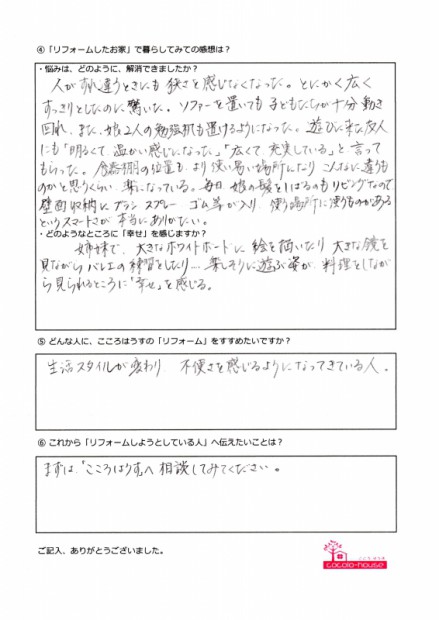 ④「リフォームしたお家」で暮らしてみての感想は？
・悩みは、どのように、解消できましたか？
人がすれ違うときにも狭さを感じなくなった。とにかく広く
すっきりとしたのに驚いた。ソファーを置いても子どもたちが十分動き
回れ、また、娘2人の勉強机も置けるようになった。遊びに来た友人
にも「明るくて、温かい感じになった」「広くて、充実している」と言って
もらった。食器棚の位置も、より使い易い場所になり こんなに違うも
のかと思うくらい、楽になっている。毎日、娘の髪をしばるのもリビングなので
壁面収納に ブラシ スプレー ゴム等が入り、使う場所に使うものがある
というスマートさが本当にありがたい。
・どのようなところに「幸せ」を感じますか？
姉妹で、大きなホワイトボードに絵を描いたり 大きな鏡を
見ながらバレエの練習をしたり…楽しそうに遊ぶ姿が、料理をしなが
ら見られるところに「幸せ」を感じる。
⑤ どんな人に、こころはうすの「リフォーム」をすすめたいですか？
生活スタイルが変わり 不便さを感じるようになってきている人。
⑥ これから「リフォームしようとしている人」へ伝えたいことは？
まずは、「こころはうす」へ相談してみてください。
ご記入、ありがとうございました。
こころはうす
cocolo-house